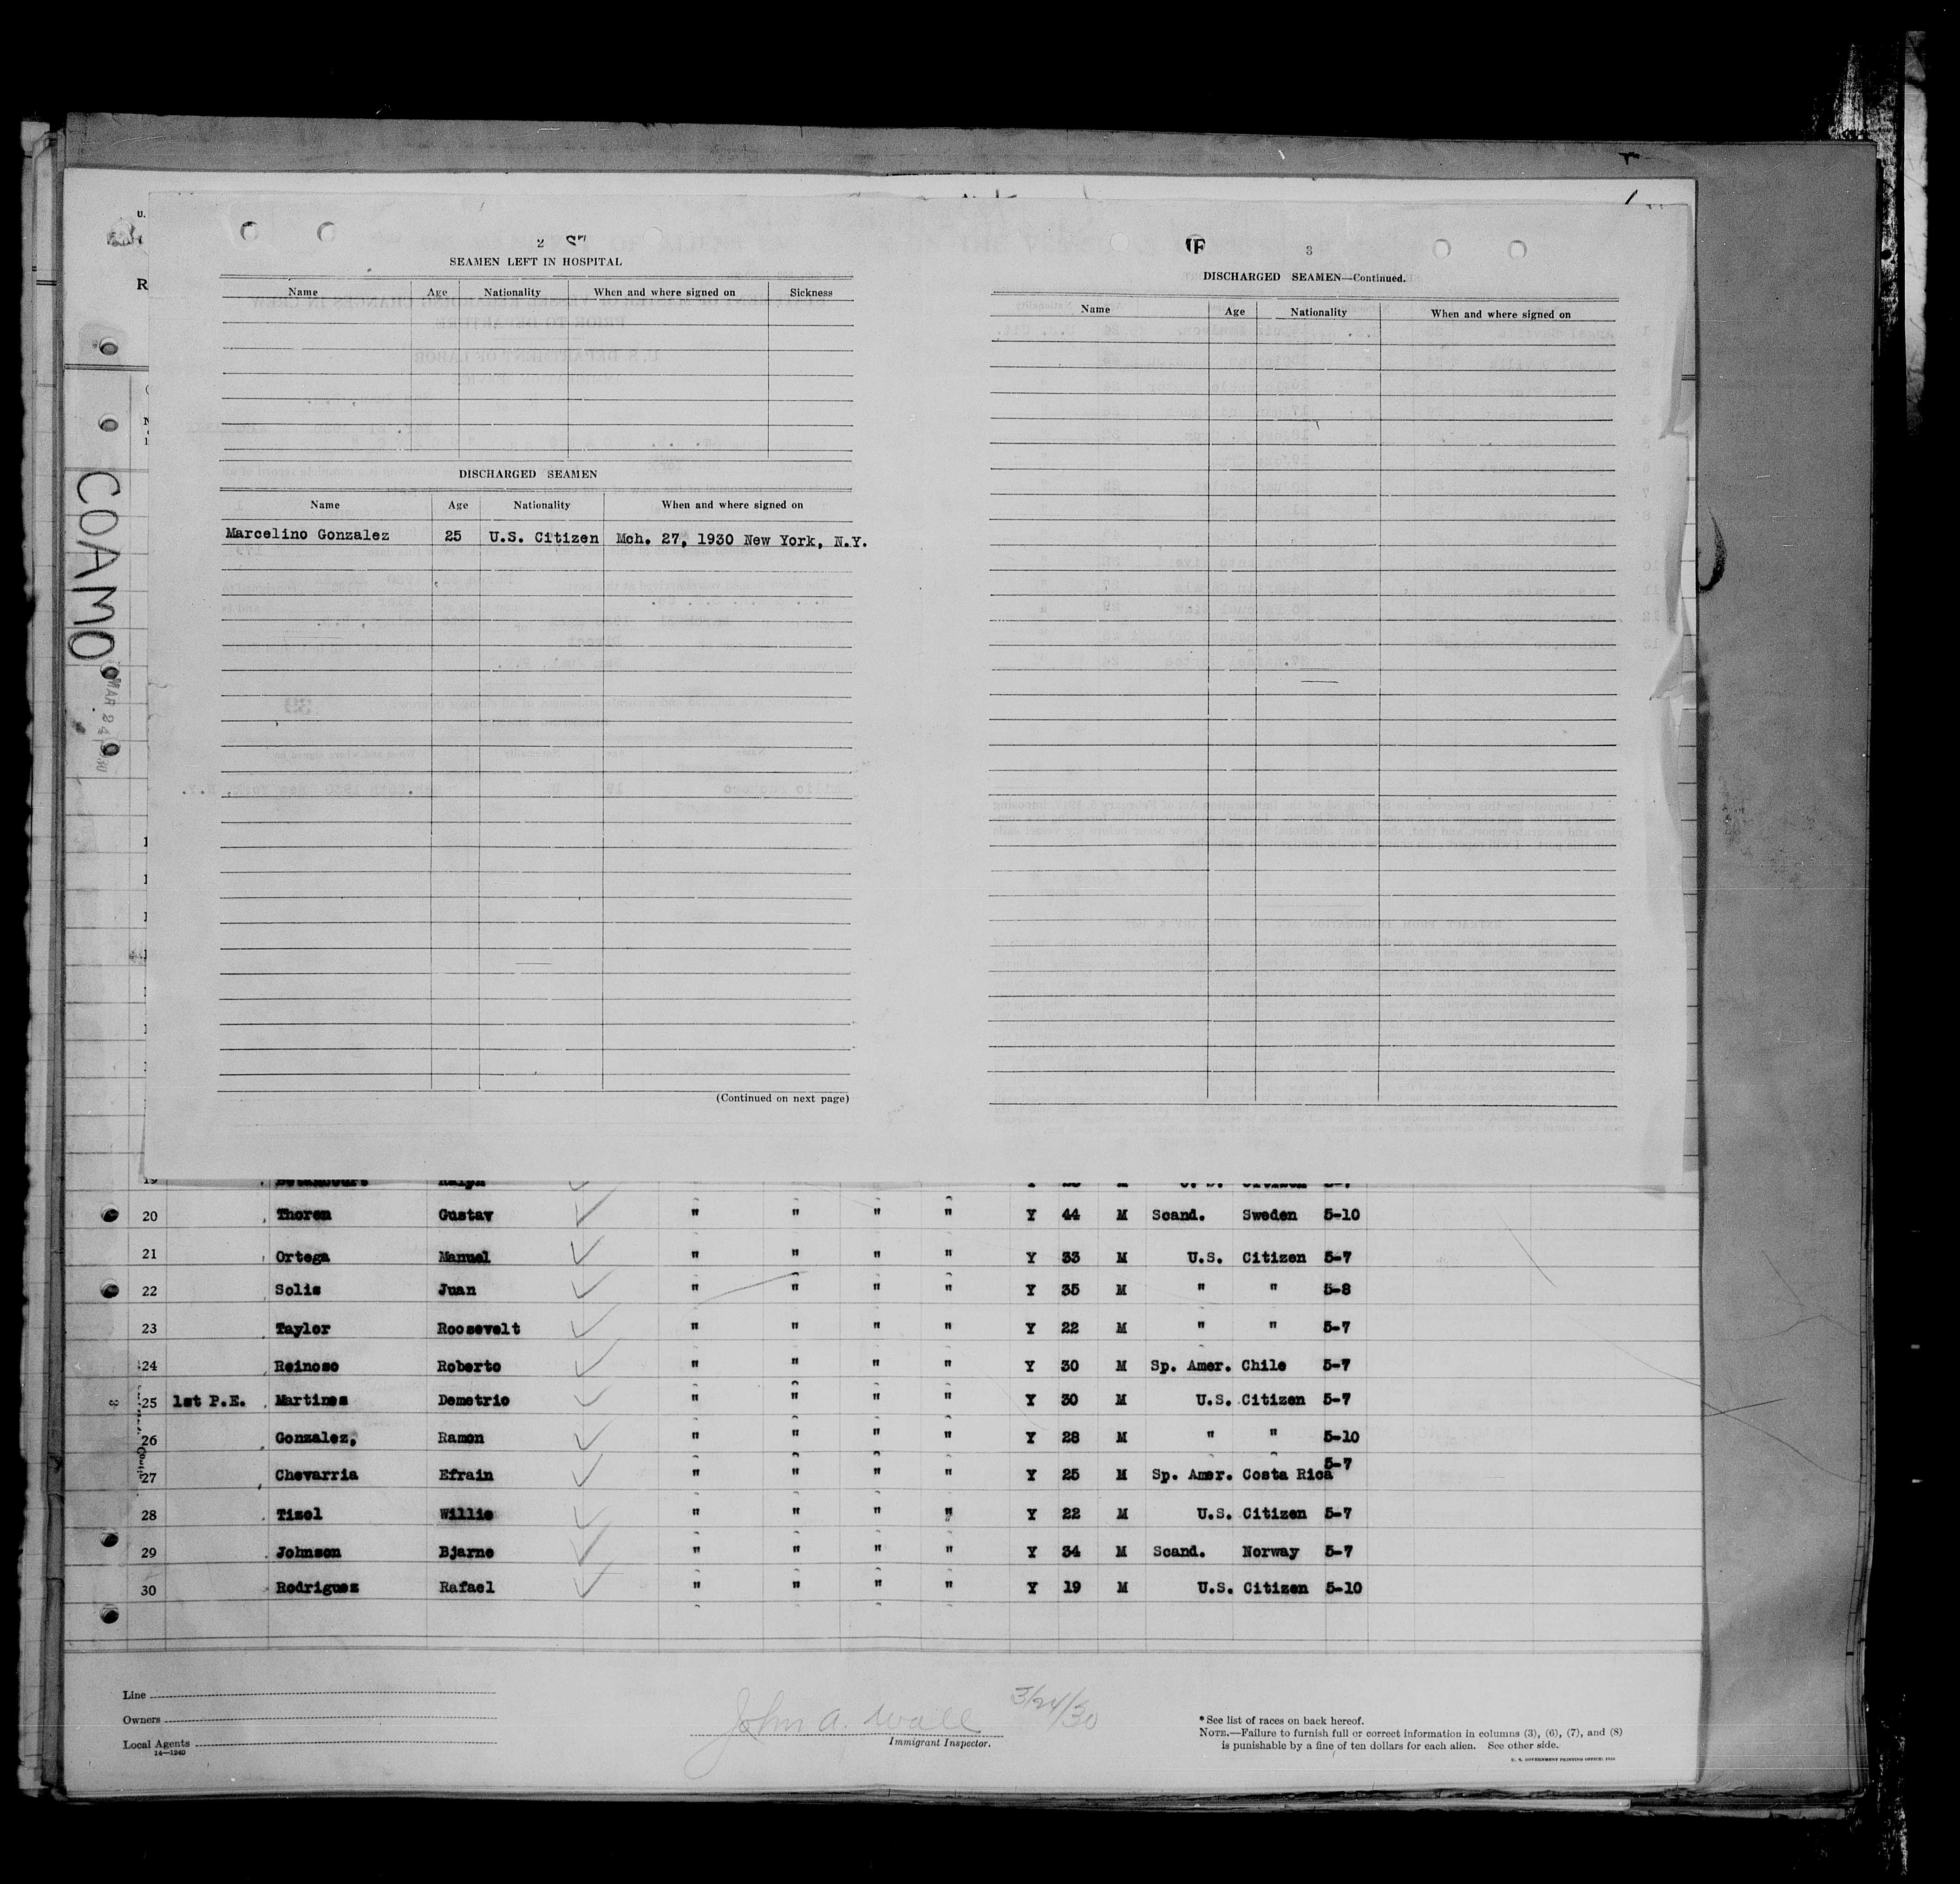 COAMO
MAR 24 1930
U.
R
2
SEAMEN LEFT IN HOSPITAL
Name Age Nationality When and where signed on Sickness
DISCHARGED SEAMEN
Name Age Nationality When and where signed on
Marcelino Gonzalez 25 U.S. Citizen Mch. 27, 1930 New York, N.Y.
(Continued on next page)
3
DISCHARGED SEAMEN—Continued.
Name Age Nationality When and where signed on
19 Betancourt Ralph
20 Thoren Gustav " " " " Y 44 M Scand. Sweden 5-10
21 Ortega Manuel " " " " Y 33 M U.S. Citizen 5-7
22 Solis Juan " " " " Y 35 M " " 5-8
23 Taylor Roosevelt " " " " Y 22 M " " 5-7
24 Reinoso Roberto " " " " Y 30 M Sp. Amer. Chile 5-7
25 1st P.E. Martines Demetrio " " " " Y 30 M U.S. Citizen 5-7
26 Gonzalez, Ramon " " " " Y 28 M " " 5-10
27 Chevarria Efrain " " " " Y 25 M Sp. Amer. Costa Rica 5-7
28 Tizol Willie " " " " Y 22 M U.S. Citizen 5-7
29 Johnson Bjarne " " " " Y 34 M Scand. Norway 5-7
30 Rodriguez Rafael " " " " Y 19 M U.S. Citizen 5-10
Line
Owners
Local Agents
14—1240
John A. Wall 3/24/30
Immigrant Inspector.
* See list of races on back hereof.
NOTE.—Failure to furnish full or correct information in columns (3), (6), (7), and (8)
is punishable by a fine of ten dollars for each alien. See other side.
U. S. GOVERNMENT PRINTING OFFICE: